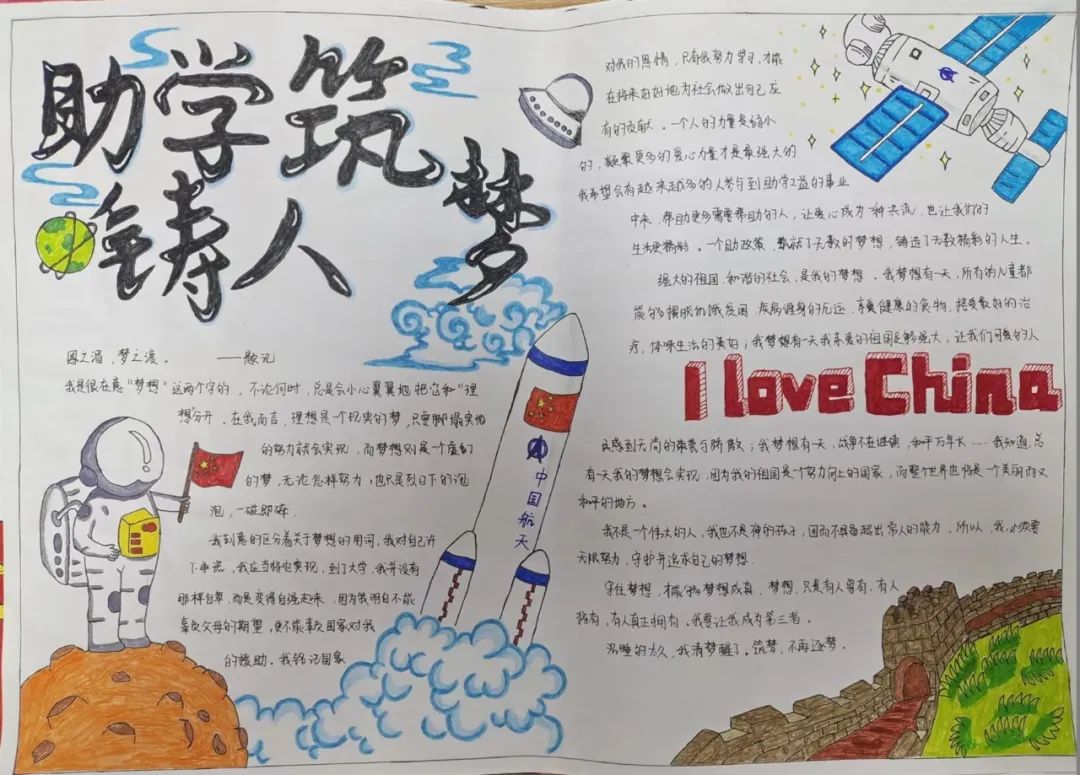 助学筑梦
铸人
困之源，梦之渡。 ——题记
我是很在意“梦想”这两个字的，不论何时，总是会小心翼翼地把它和“理
想分开。在我而言，理想是个现实的梦，只要脚塌实地
的努力就会实现，而梦想则是个虚幻
的梦，无论怎样努力，也只是烈日下的泡
泡，一碰即碎。
我刻意的区分着关于梦想的用词，我对自己许
下承诺，我应当将它实现，到了大学，我并没有
那样自卑，而是变得自强起来，因为我明白不能
辜负父母的期望，更不能辜负国家对我
的援助。我铭记国家
对我的恩情，只有我努力学习，才能
在将来好好地为社会做出自己应
有的贡献。一个人的力量是渺小
的，凝聚更多的爱心力量才是最强大的
我希望会有越来越多的人参与到助学工益的事业
中来，帮助更多需要帮助的人，让爱心成为一种共流，也让我们的
生活更精彩。一个助政策，成就了无数的梦想，铸造了无数精彩的人生。
强大的祖国，和谐的社会，是我的梦想。我梦想有一天，所有的儿童都
能够摆脱饥饿贫困 疾病缠身的厄运，享受健康的食物，接受最好的治
疗，体味生活的美好；我梦想有一天我亲爱的祖国足够强大，让我们可爱的人
I love China
民感到无尚的荣誉与骄傲；我梦想有一天，战争不在继续，和平万年长……我知道，总
有一天我的梦想会实现，因为我的祖国是个努力向上的国家，而整个世界也将是一个美丽而又
和平的地方。
我不是一个伟大的人，我也不是神的孩子，因而不具备超出常人的能力，所以，我必须要
无限努力，守护并追求自己的梦想。
守住梦想，才能够梦想成真，梦想，只是有人曾有，有人
稀有，有人真正拥有，我要让我成为第三者。
沉睡的太久，我清梦醒了。筑梦，不再逐梦。
中国航天